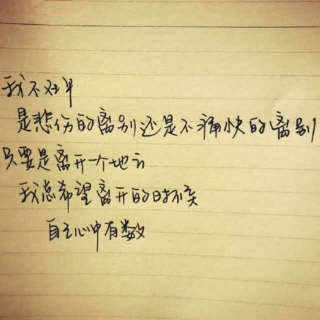 我不对半
是悲伤的离别还是不痛快的离别
只要是离开一个地方
我总希望离开的时候
自己心中有数